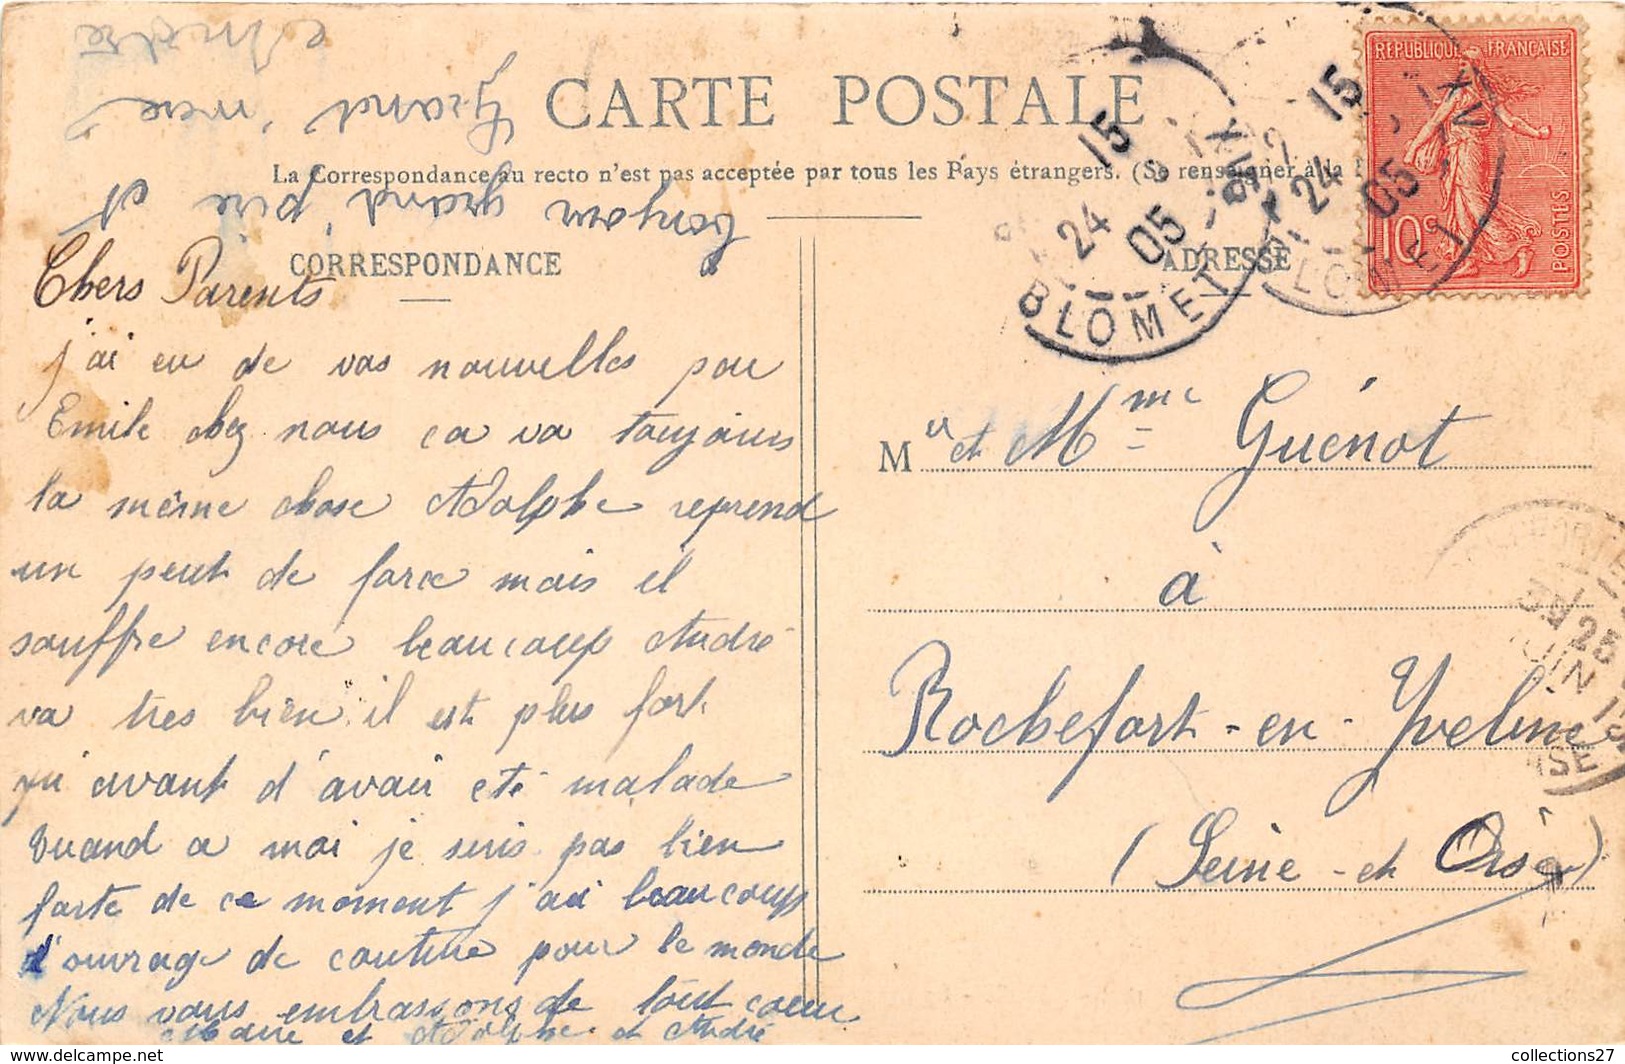 CARTE POSTALE
La Correspondance au recto n'est pas acceptée par tous les Pays étrangers. (Se renseigner à la
bonjour grand'père et
Grand'mère
André
CORRESPONDANCE
ADRESSE
RÉPUBLIQUE FRANÇAISE
10c
POSTES
15
24
05
BLOMET
15
24
05
BLOMET
XV
Chers Parents
j'ai eu de vos nouvelles par
Emile chez nous ca va toujours
la même chose Adolphe reprend
un peut de force mais il
souffre encore beaucoup André
va tres bien il est plus fort
qu'avant d'avoir eté malade
Quand a moi je suis pas bien
forte de ce moment j'ai beaucoup
d'ouvrage de couture pour le monde
Nous vous embrassons de tout coeur
Marie et Adolphe et André
Mr et Mme Guénot
à
Rochefort-en-Yveline
(Seine-et-Oise)
25
JUIN
collections27